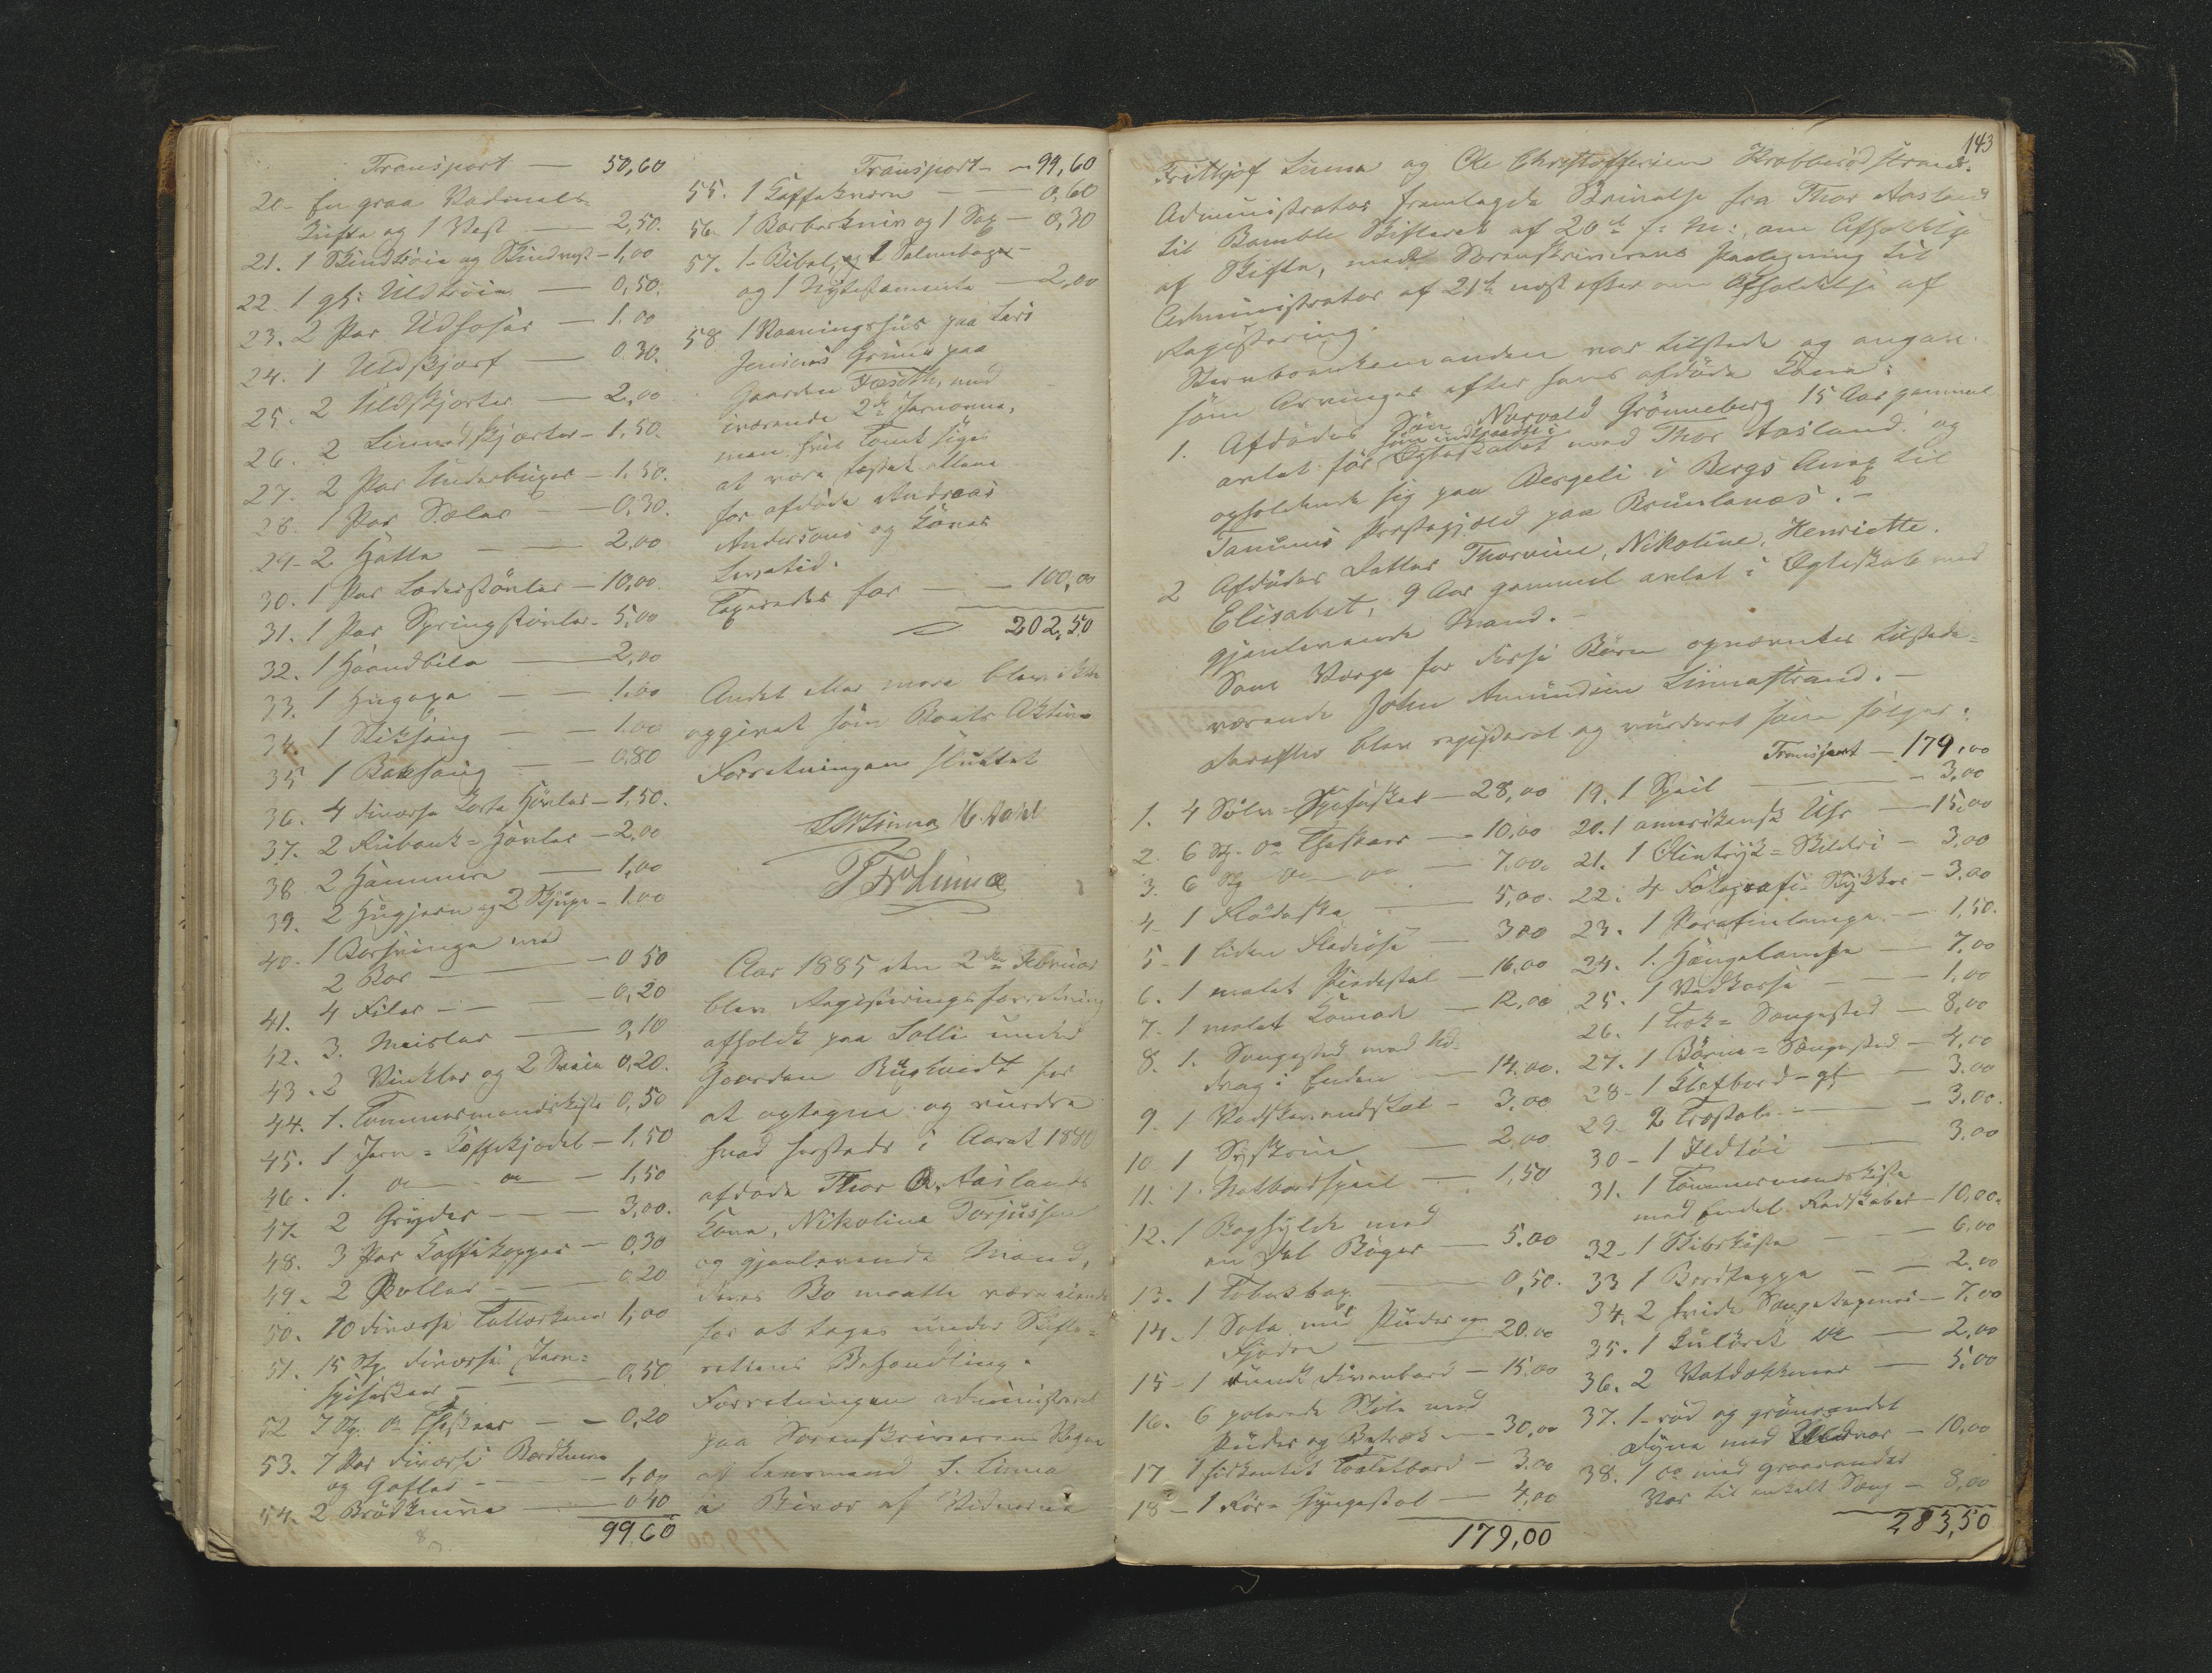 Transport — 50,60
20. En graa Vadmels-
Kufte og 1 Vest — 2,50.
21. 1 Skindtröie og Skindvest — 1,00
22. 1 gl: Uldtröie — 0,50.
23. 2 Par Uldhoser — 1.00
24. 1 Uldskjærf — 0.30.
25. 2 Uldskjorter — 2,00
26. 2 Linnedskjorter — 1,50.
27. 2 Par Underbuxer — 1,50.
28. 1 Par Sæler — 0,30.
29. 2 Hatte — 2,00
30. 1 Par Læderstövler — 10,00.
31. 1 Par Springstövler — 5,00
32. 1 Haandbile — 2,00
33. 1 Hugøxe — 1.00
34. 1 Stiksaug — 1.00
35 1 Baksaug — 0,80
36. 4 diverse korte Hövler — 1,50.
37. 2 Rubank-Hövler — 2,00
38 2 Hammere — 1,00
39. 2 Hugjern og 2 — 1.00
40. 1 Borsvinge med
2 Bor — 0 50
41. 4 Filer — 0,20
42. 3. Meisler — 0,10
43. 2 Vinkler og 2 0,20.
44. 1. Tømmermandskiste 0,50
45. 1 Jern-Kaffekjedel — 1,50
46. 1. do do — 1,50
47. 2 Gryder — 3,00.
48. 3 Par Kaffekopper — 0,30
49. 2 Boller — 0,20
50. 10 diverse Tallerkener 1,00
51. 15 Stk. diverse Jern-
spiseskeer — 0,50
52 7 Stk. do Theskeer — 0,20
53. 7 Par diverse Bordknive
og Gafler — 1,00
54. 2 Brödknive — 0 40
99,60
Transport — 99,60
55. 1 Kaffekværn — 0,60
56. 1 Barberkniv og 1 Sax — 0,30
57. 1 Bibel, og 1 Salmebog
og 1 Nytestamente — 2,00
58 1 Vaaningshus paa Lars
Jensens Grund paa
Gaarden Foseth, med
iværende 2de Jernovne,
men hvis Tomt siges
at være fæstet allene
for afdöde Andreas
Andersens og Kones
Levetid.
Taxeredes for — 100,00
202,50
Andet eller mere blev ikke
opgivet som Boets Aktiva
Forretningen sluttet
Linna N. Dahl
F Linnæ
Aar 1885 den 2den Februar
blev Registeringsforretning
afholdt paa Solli under
Gaarden Rugtvedt for
at optegne og vurdere
hvad hosstods i Aaret 1880
afdöde Thor O. Aaslands
Kone, Nikoline Torjussen
og gjenlevende Mand,
deres Bo maatte være eiende
for at tages under Skifte-
rettens Behandling.
Forretningen administreret
paa Sorenskriverens Vegne
af Lensmand F. Linna
i Overvær af Vidnerne
143
Fritkjof Linna og Ole Christoffersen Krabberödstrand.
Administrator fremlagde Skrivelse fra Thor Aasland
til Bamble Skifteret af 20de f: M:, om Afholdelse
af Skifte, med Sorenskriverens Paategning til
Administrator af 21de næst efter om Afholdelse af
Registering.
Stervboenkemanden var tilstede og angav
som Arvinger efter hans afdöde Kone:
1. Afdödes Sön Norvald Grönneberg 15 Aar gammel
avlet för Ægteskabet med Thor Aasland og
som indtraadte i
opholdende sig paa Bergeli i Bergs Annex til
Tanums Prestegjæld paa Brunlanæs. —
2 Afdödes Datter Thorvine, Nikoline, Henriette.
Elisabet, 9 Aar gammel avlet i Ægteskab med
gjenlevende Mand. —
Som Værge for disse Börn opnævntes tilstede-
værende John Amundsen Linnastrand. —
Derefter blev registeret og vurderet som fölger:
1. 4 Sölv-Spiseskeer — 28,00
2. 6 Stk. do Theskeer — 10,00
3. 6 Stk do do — 7.00.
4 1 Flödeske — 5,00.
5 1 liden — 3 00
6. 1 malet Pindestel — 16,00
7. 1 malet Komode — 12,00
8. 1. Sengested med Ud-
drag i Enden — 14,00.
9. 1 Vadskevandstel — 3,00
10 1 Syskrin — 2,00
11. 1. Natbordspeil — 1,50
12. 1 Boghylde med
en Del Böger — 5.00
13. 1 — 0,50.
14. 1 Sofa med Puder og
Fjedre — 20.00
15 1 rundt Divanbord — 15.00
16. 6 polerede Stole med
Puder og Betræk — 30,00
17 1 firkantet Toiletbord — 3.00
18 1 Rör-Gyngestol — 4,00
179,00
Transport — 179,00
19. 1 Speil — 3,00
20. 1 amerikansk Uhr — 15,00
21. 1 Olietryk-Skilderi — 3,00
22. 4 Fotografi-Stykker — 3.00
23. 1 Parafinlampe — 1,50.
24. 1. Hængelampe — 7,00
25. 1 Vedkasse — 1,00
26. 1 Træk-Sengested — 8,00
27. 1 Börne-Sengested — 4,00
28. 1 Klafbord gl — 3.00
29. 2 Træstole — 3.00.
30 1 Ildtöi — 3,00
31. 1 Tömmermandskiste
med Endel Redskaber — 10,00.
32. 1 Skibskiste — 6.00
33 1 Bordteppe — 2.00
34. 2 hvide Sengetepper — 7.00
35. 1 kulört do — 2,00
36. 2 Vatdækkener — 5,00
37. 1 röd og grönrandet
Dyne med — 10,00
38. 1 do med graarandet
Vor til enkelt Seng — 8,00
283,50